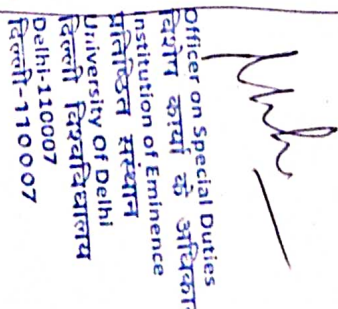 Officer on Special Duties
विशेष कार्यों के अधिकारी
Institution of Eminence
प्रतिष्ठित संस्थान
University Of Delhi
दिल्ली विश्वविद्यालय
Delhi-110007
दिल्ली-110007